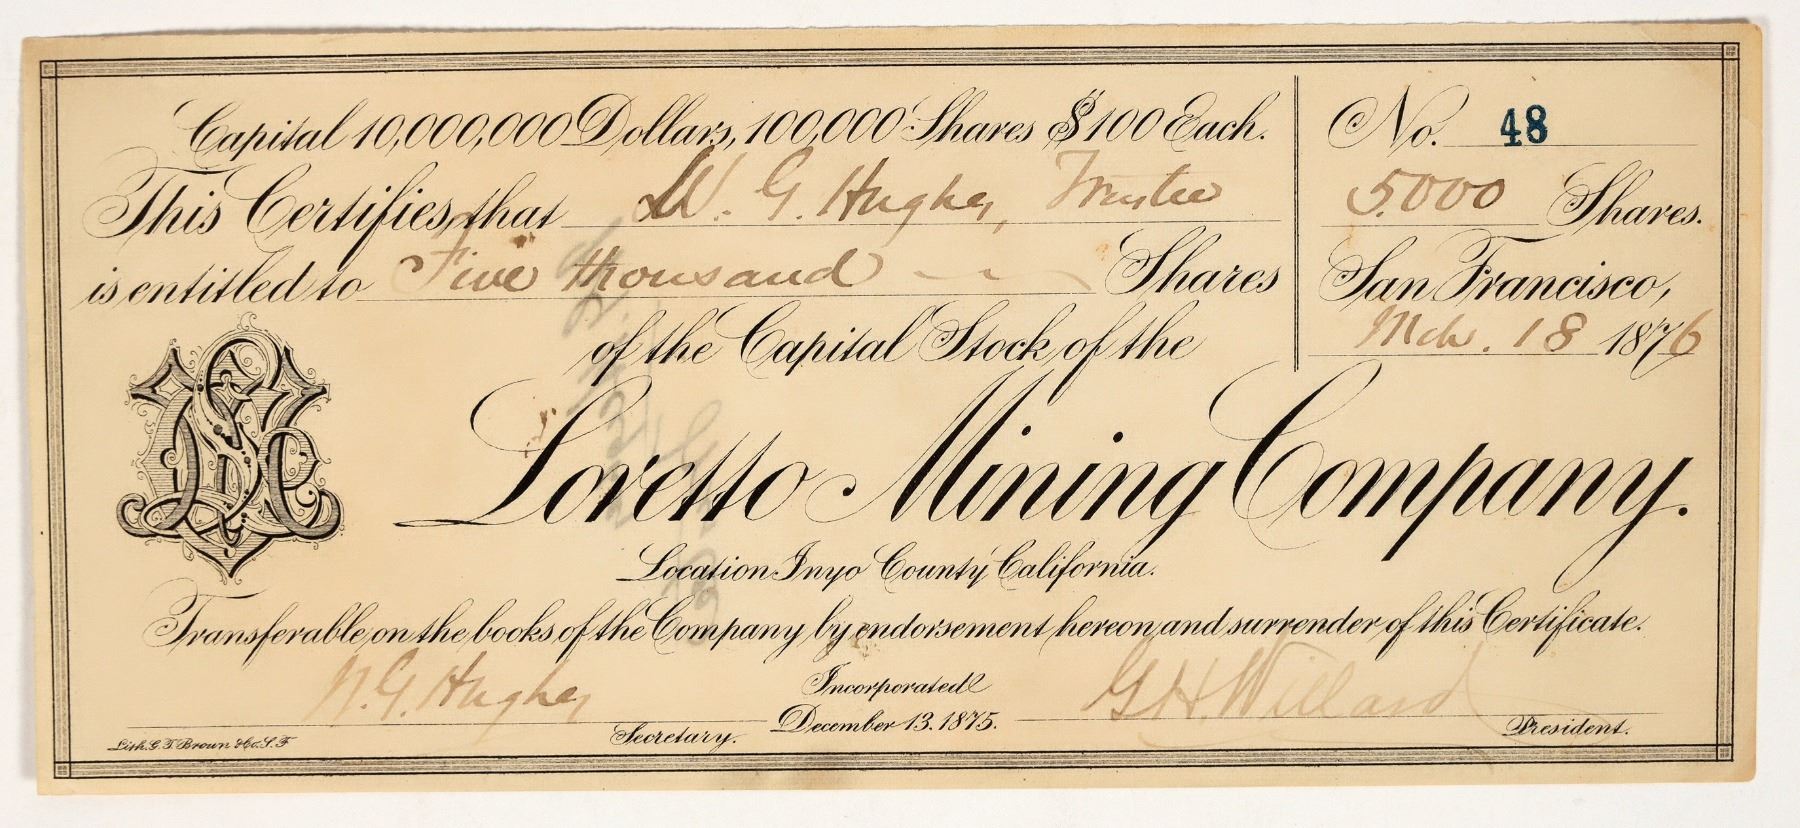 Capital 10,000,000 Dollars, 100,000 Shares $100 Each.
No. 48
This Certifies, that W. G. Hughes, Trustee
5.000 Shares.
is entitled to Five thousand Shares
San Francisco,
Mch. 18 1876
of the Capital Stock of the
Loretto Mining Company.
Location Inyo County California.
Transferable on the books of the Company by endorsement hereon and surrender of this Certificate.
W. G. Hughes
Secretary.
Incorporated
December 13. 1875.
G H. Willard
President.
Lith. G. T. Brown & Co. S. F.